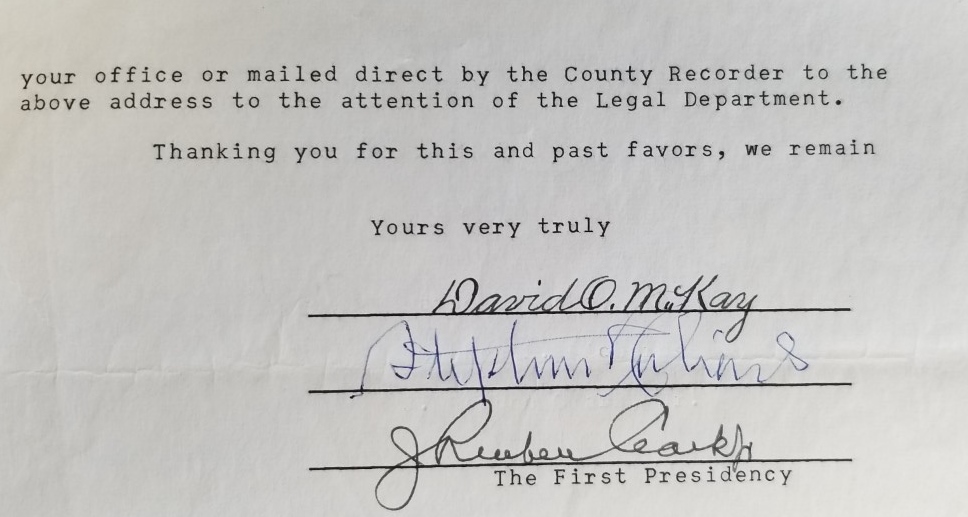 your office or mailed direct by the County Recorder to the
above address to the attention of the Legal Department.
Thanking you for this and past favors, we remain
Yours very truly
David O. McKay
J Reuben Clark Jr
The First Presidency